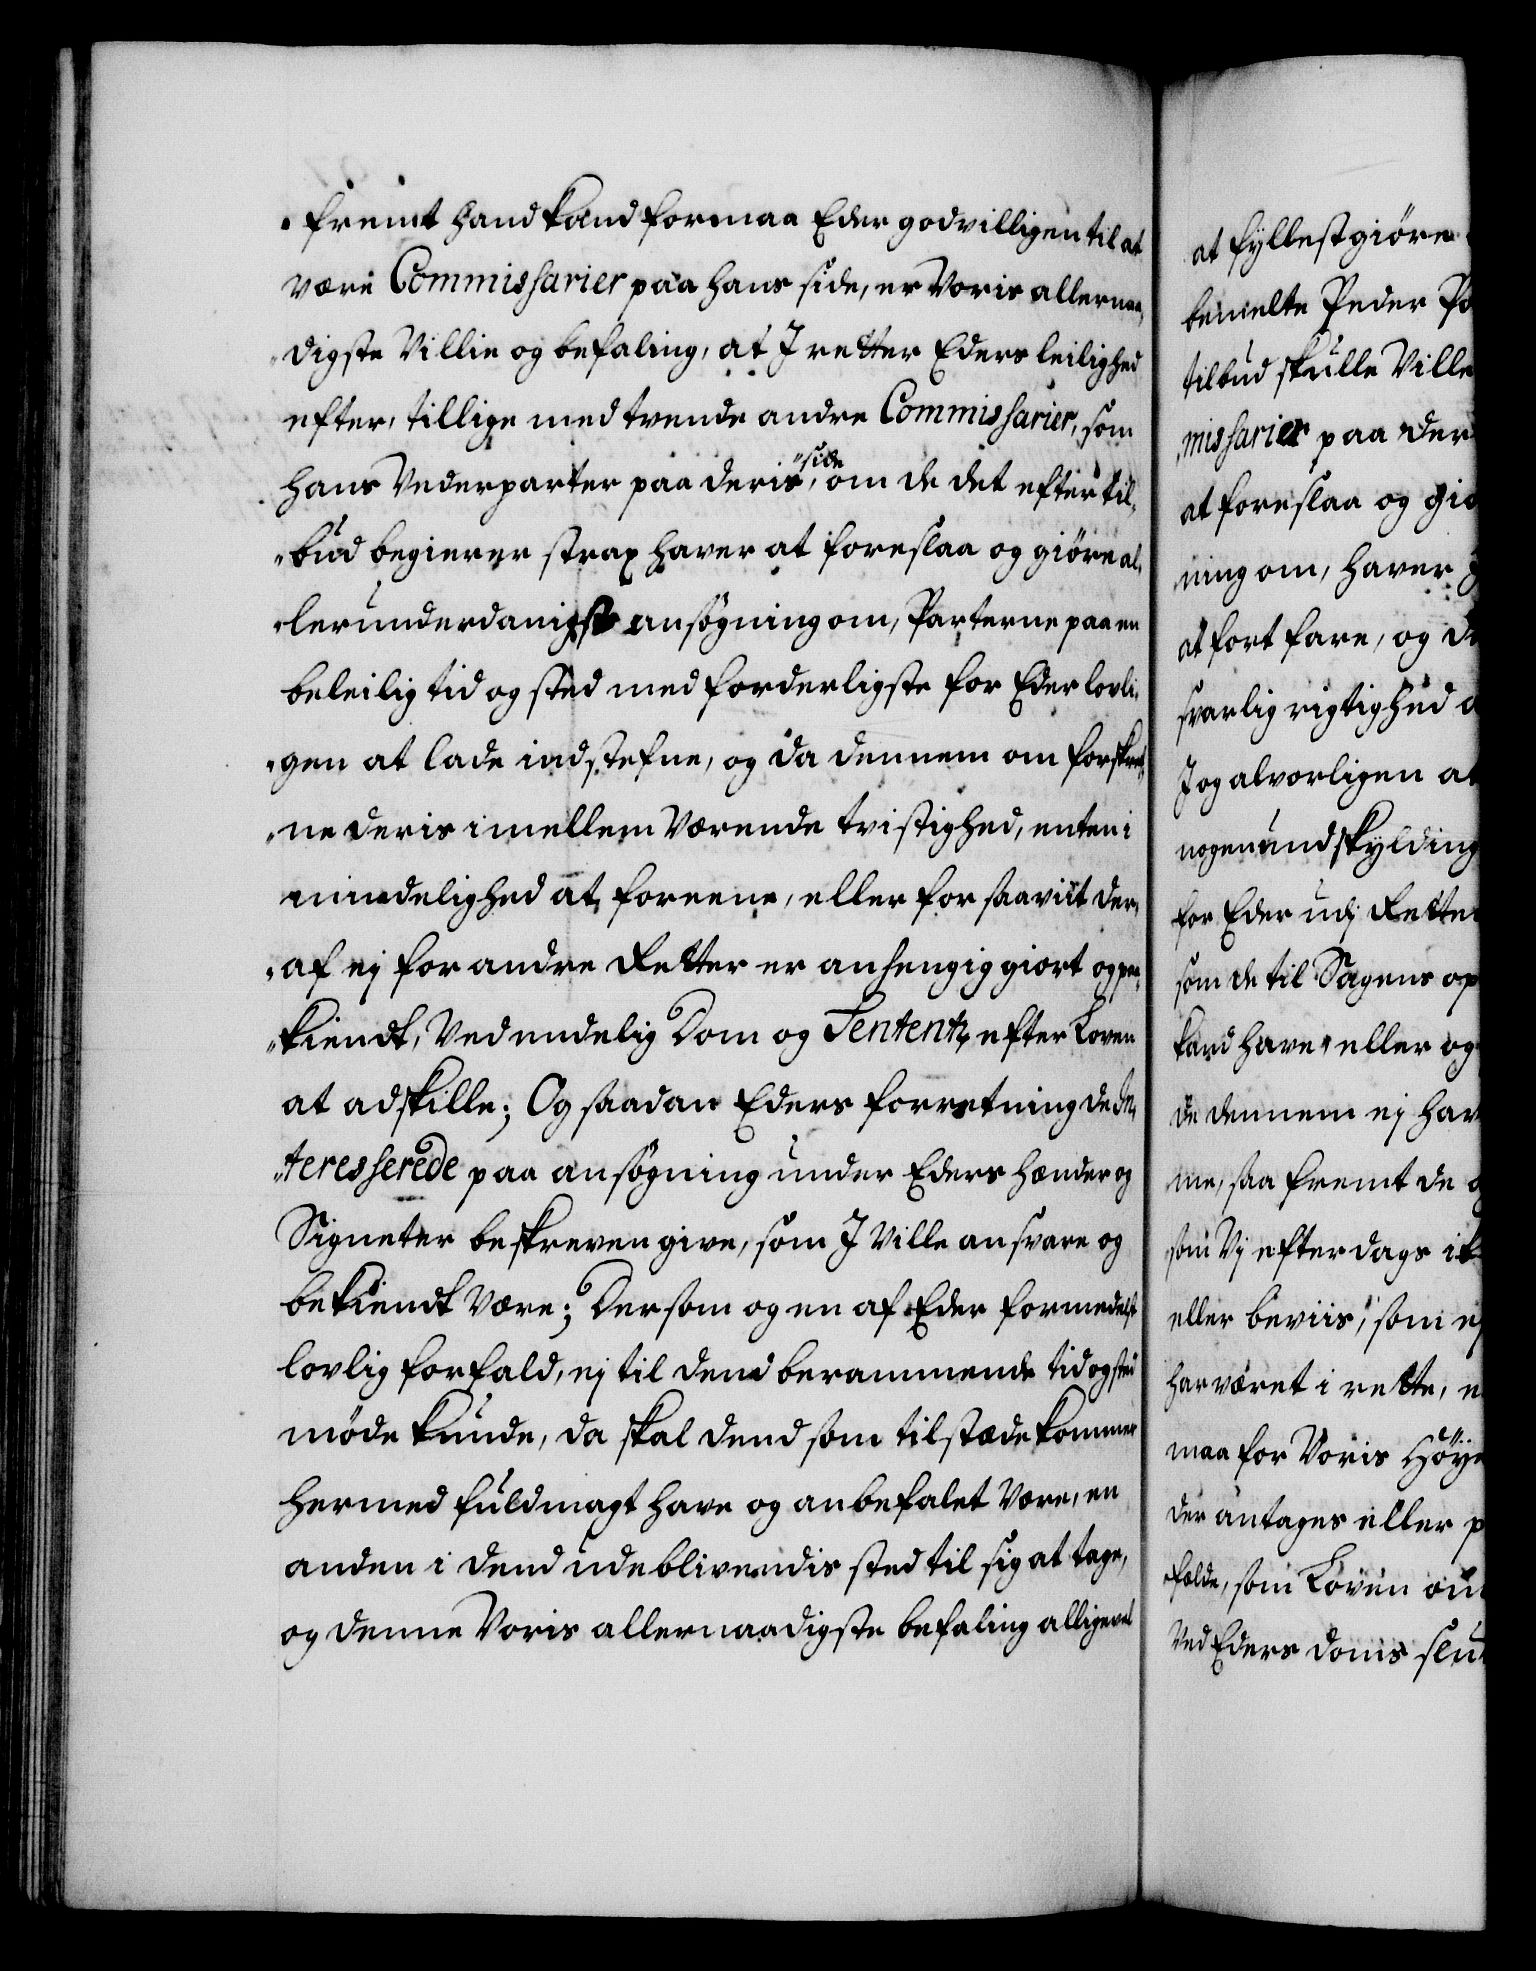 fremt hand kand formaa Eder godvilligen til at
være Commissarier paa hans side, er Voris allernaa,
digste Villie og befaling, at I retter Eders leilighed
efter, tillige med tvende andre Commissarier, som
hans Vederparter paa deris side, om de det efter til,
bud begierer strax haver at foreslaa og giøre al,
lerunderdanigst ansøgning om, Parterne paa en
beleilig tid og sted med forderligste for Eder lovli,
gen at lade indstefne, og da dennem om forskref,
ne deris imellem Værende tvistighed, enten i
mindelighed at foreene, eller for saavit der,
af ej for andre Retter er anhengig giort og paa,
kiendt, Ved endelig Dom og Sententz efter Loven
at adskille; Og saadan Eders forretning de In,
teresserede paa ansøgning under Eders hænder og
Signeter beskreven give, som I Ville ansvare og
bekiendt Være; Dersom og en af Eder formedelst
lovlig forfald, ej til dend berammende tid og sted
møde kunde, da skal dend som tilstæde kommer
hermed fuldmagt have og anbefalet Være, en
anden i dend udeblivendis sted til sig at tage,
og denne Voris allernaadigste befaling alligevel
at fyllestgiøre
bemelte Peder
tilbud skulle Ville
missarier paa der
at foreslaa og
ning om, haver
at fort fare, og
svarlig rigtighed
I og alvorligen at
nogen undskylding
for Eder udj Rette
som de til Sagens op
kand have, eller og
de dennem ej har
me, saa fremt de
som Vj efterdags
eller beviis, som ej
har været i rette,
maa for Voris Høye
der antages eller
folde, som Loven om
Ved Eders doms slu